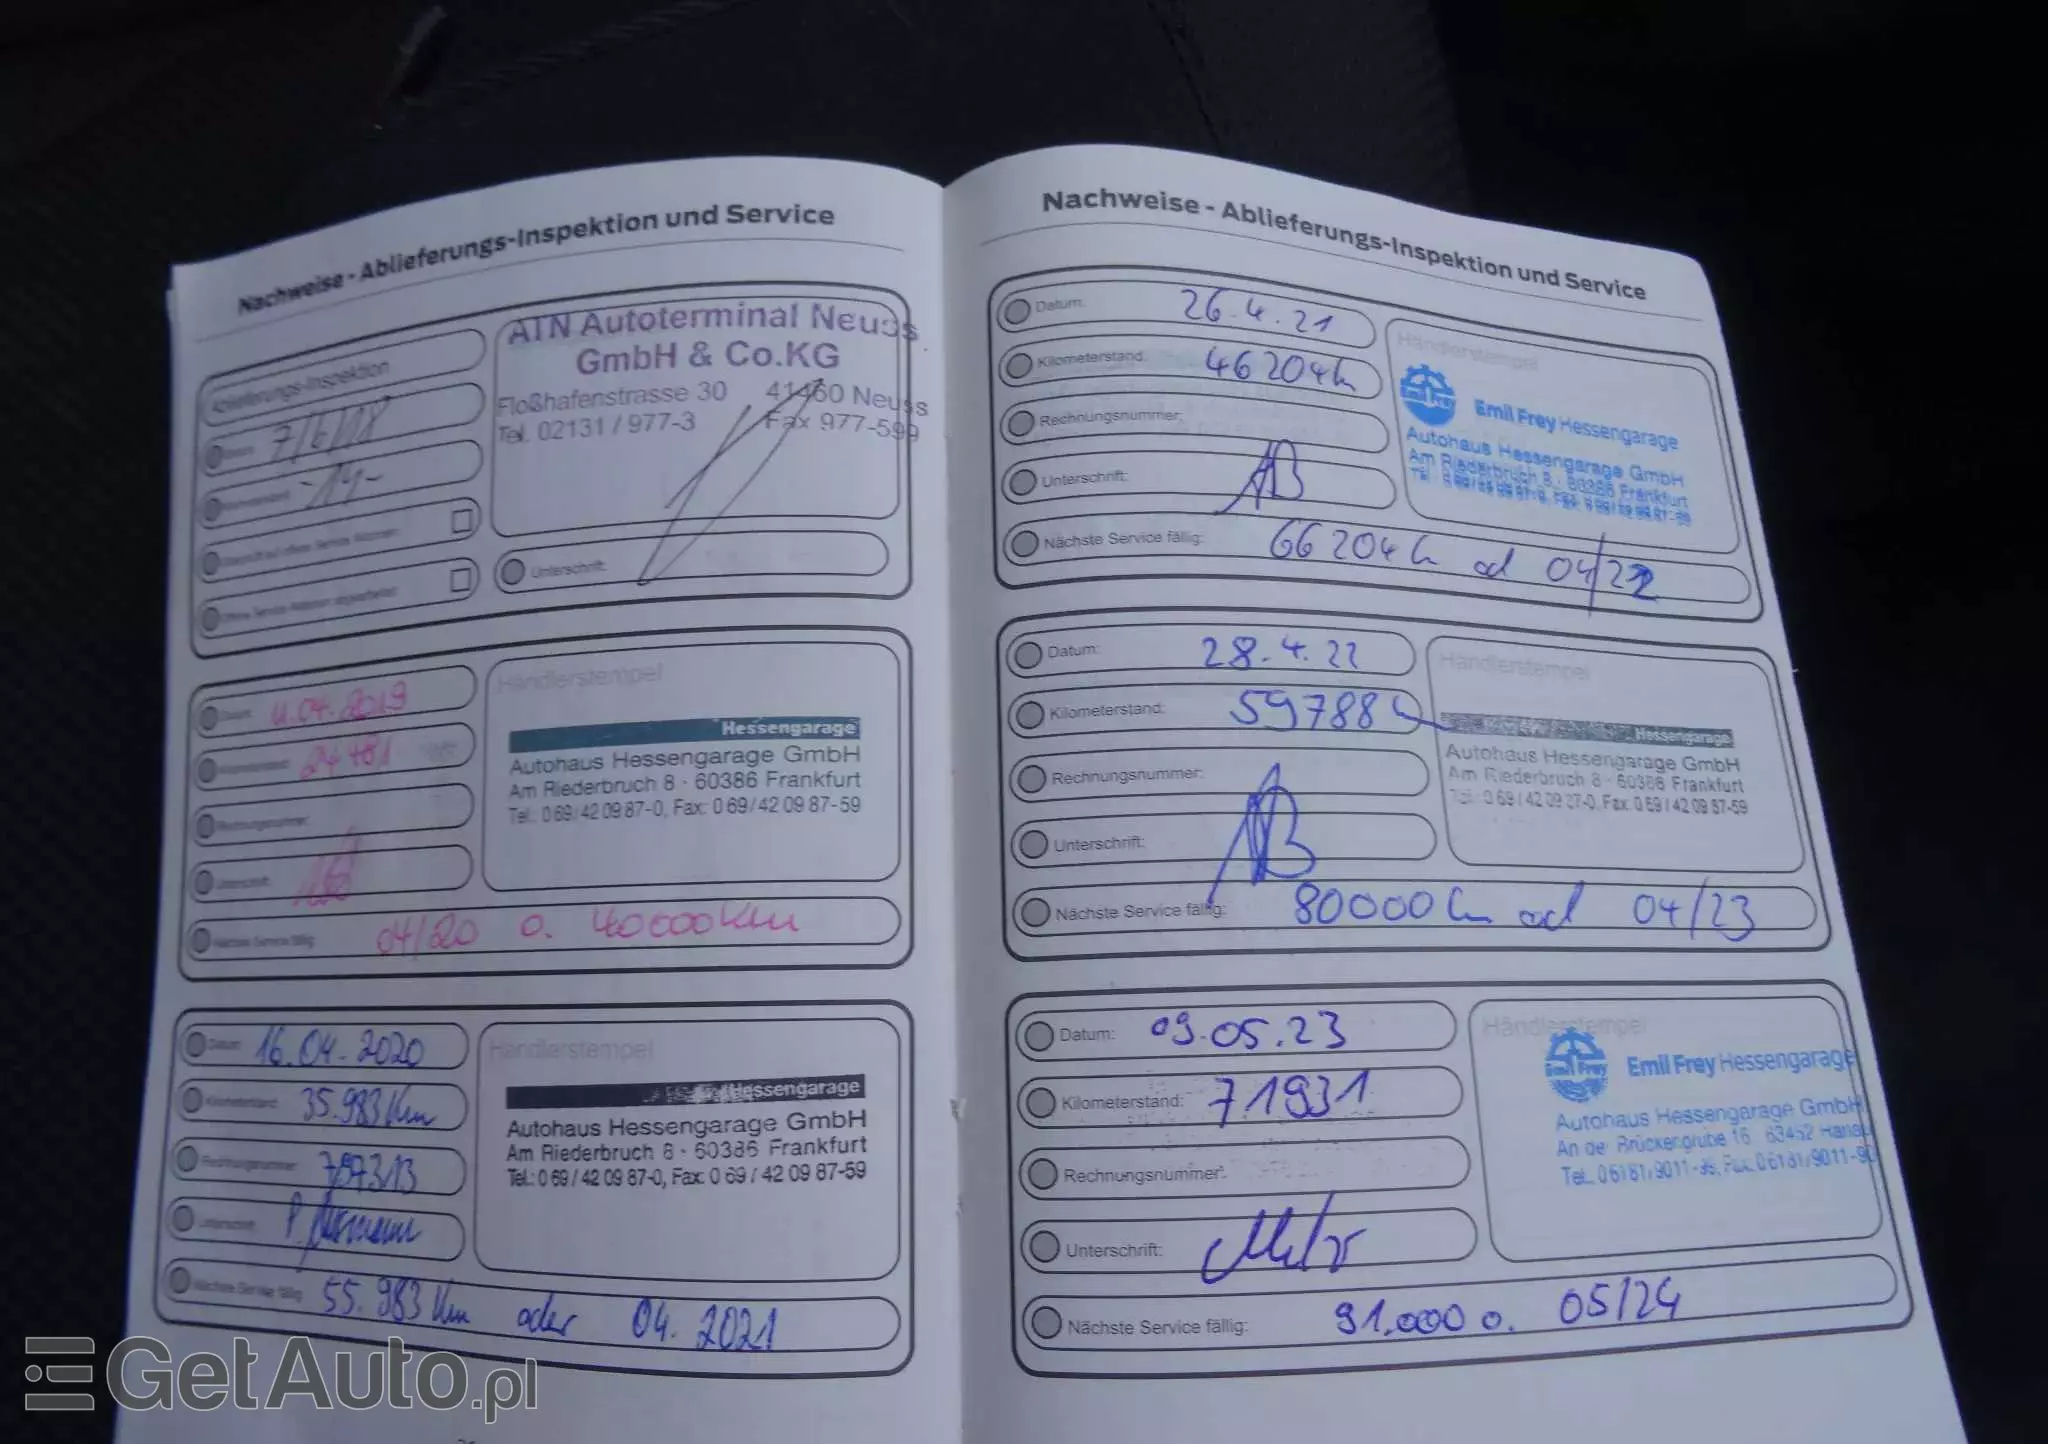 Nachweise - Ablieferungs-Inspektion und Service
Ablieferungs-Inspektion
Datum: 7/6/18
-14-
Offene Service Aktionen abgearbeitet:
ATN Autoterminal Neuss
GmbH & Co.KG
Floßhafenstrasse 30 41460 Neuss
Tel. 02131 / 977-3 Fax 977-599
Unterschrift:
Datum: 11.04.2019
Kilometerstand: 24481
Rechnungsnummer:
Unterschrift:
Nächste Service fällig: 04/20 o. 40000km
Händlerstempel
Hessengarage
Autohaus Hessengarage GmbH
Am Riederbruch 8 · 60386 Frankfurt
Tel.: 0 69 / 42 09 87-0, Fax: 0 69 / 42 09 87-59
Datum: 16.04.2020
Kilometerstand: 35.983 Km
Rechnungsnummer: 797313
Unterschrift:
Nächste Service fällig: 55.983 Km oder 04.2021
Händlerstempel
Hessengarage
Autohaus Hessengarage GmbH
Am Riederbruch 8 · 60386 Frankfurt
Tel.: 0 69 / 42 09 87-0, Fax: 0 69 / 42 09 87-59
Nachweise - Ablieferungs-Inspektion und Service
Datum: 26.4.21
Kilometerstand: 46204 km
Rechnungsnummer:
Unterschrift: AB
Nächste Service fällig: 66204 km od 04/22
Händlerstempel
Emil Frey
Emil Frey Hessengarage
Autohaus Hessengarage GmbH
Am Riederbruch 8 · 60386 Frankfurt
Datum: 28.4.22
Kilometerstand: 59788 km
Rechnungsnummer:
Unterschrift: AB
Nächste Service fällig: 80000 km od 04/23
Händlerstempel
Hessengarage
Autohaus Hessengarage GmbH
Am Riederbruch 8 · 60386 Frankfurt
Tel.: 0 69 / 42 09 87-0, Fax: 0 69 / 42 09 87-59
Datum: 09.05.23
Kilometerstand: 71931
Rechnungsnummer:
Unterschrift:
Nächste Service fällig: 91.000 o. 05/24
Händlerstempel
Emil Frey
Emil Frey Hessengarage
Autohaus Hessengarage GmbH
An der Brückengrube 16 · 63452 Hanau
GetAuto.pl